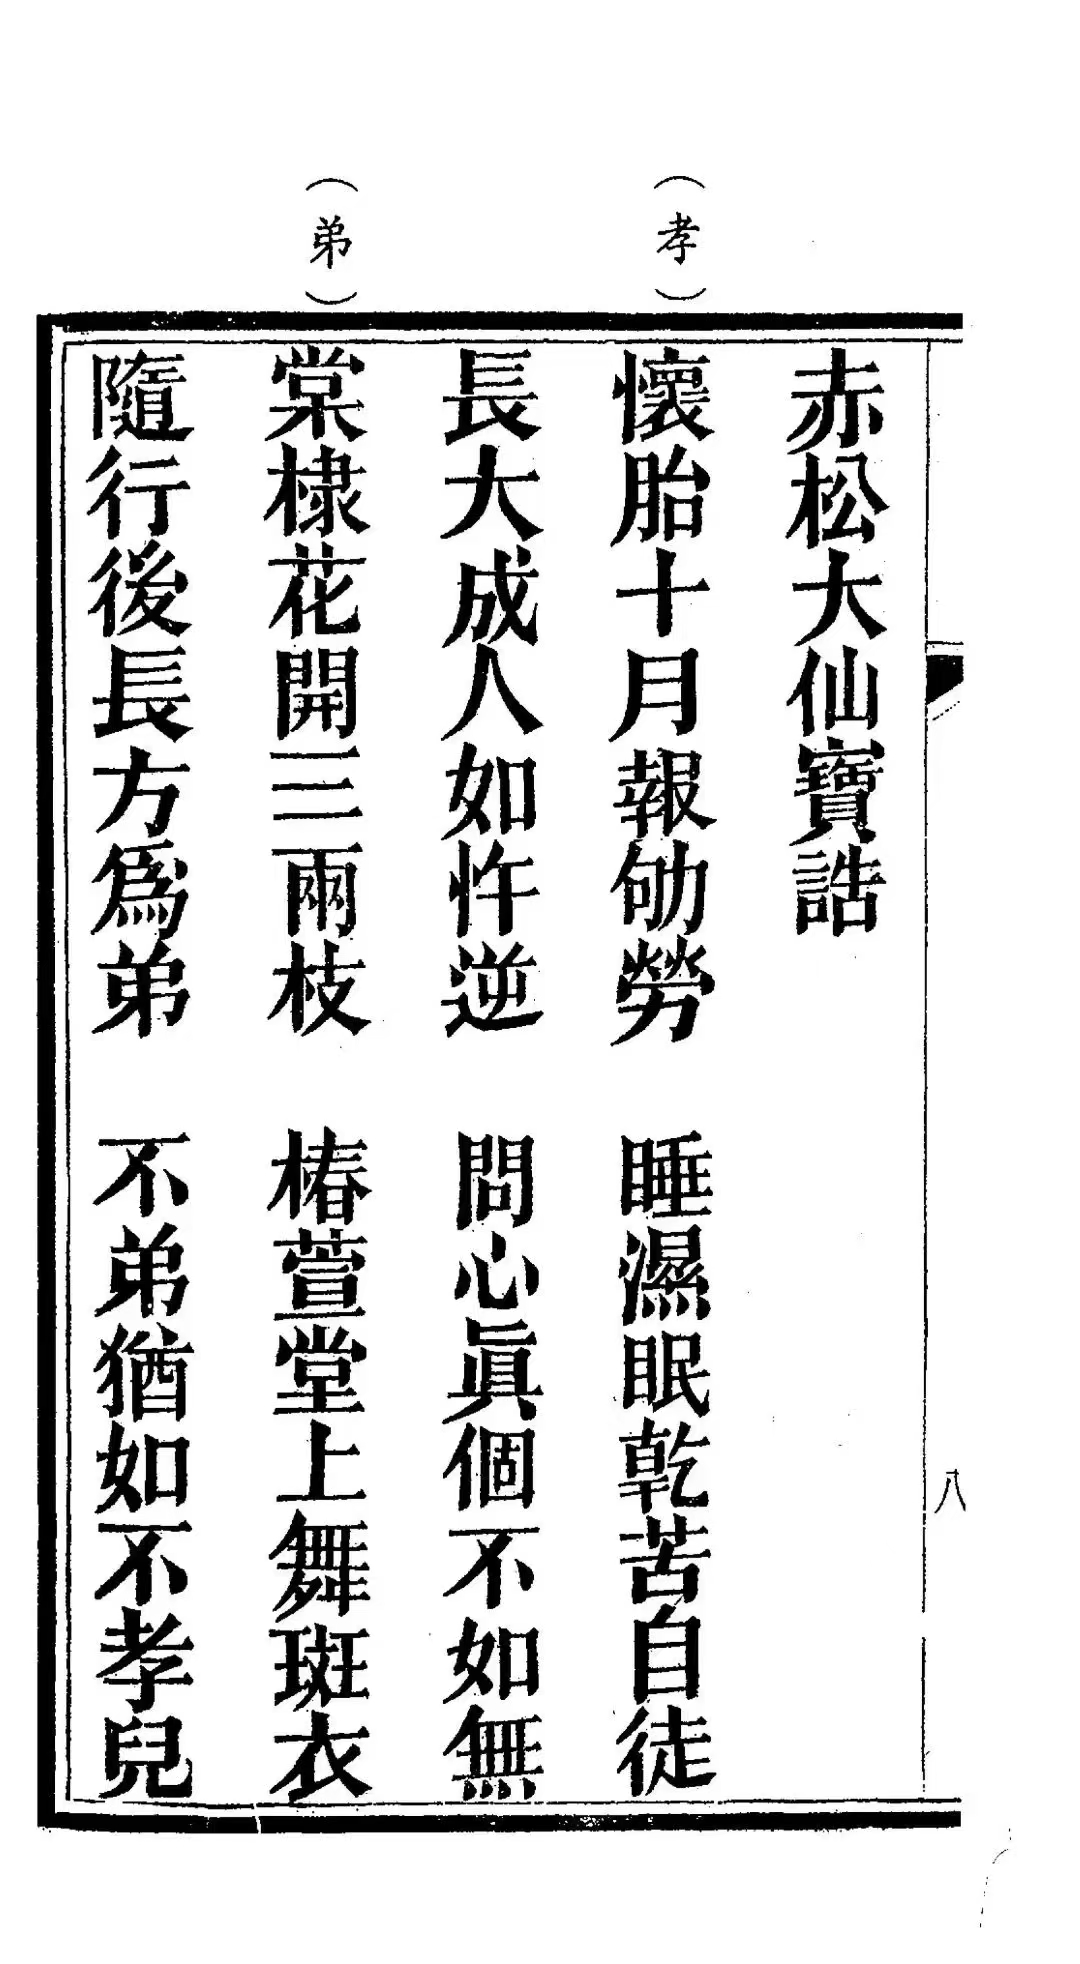 赤松大仙寶誥
（孝）
懷胎十月報劬勞　睡濕眠乾苦自徒
長大成人如忤逆　問心眞個不如無
（弟）
棠棣花開三兩枝　椿萱堂上舞斑衣
隨行後長方爲弟　不弟猶如不孝兒
八